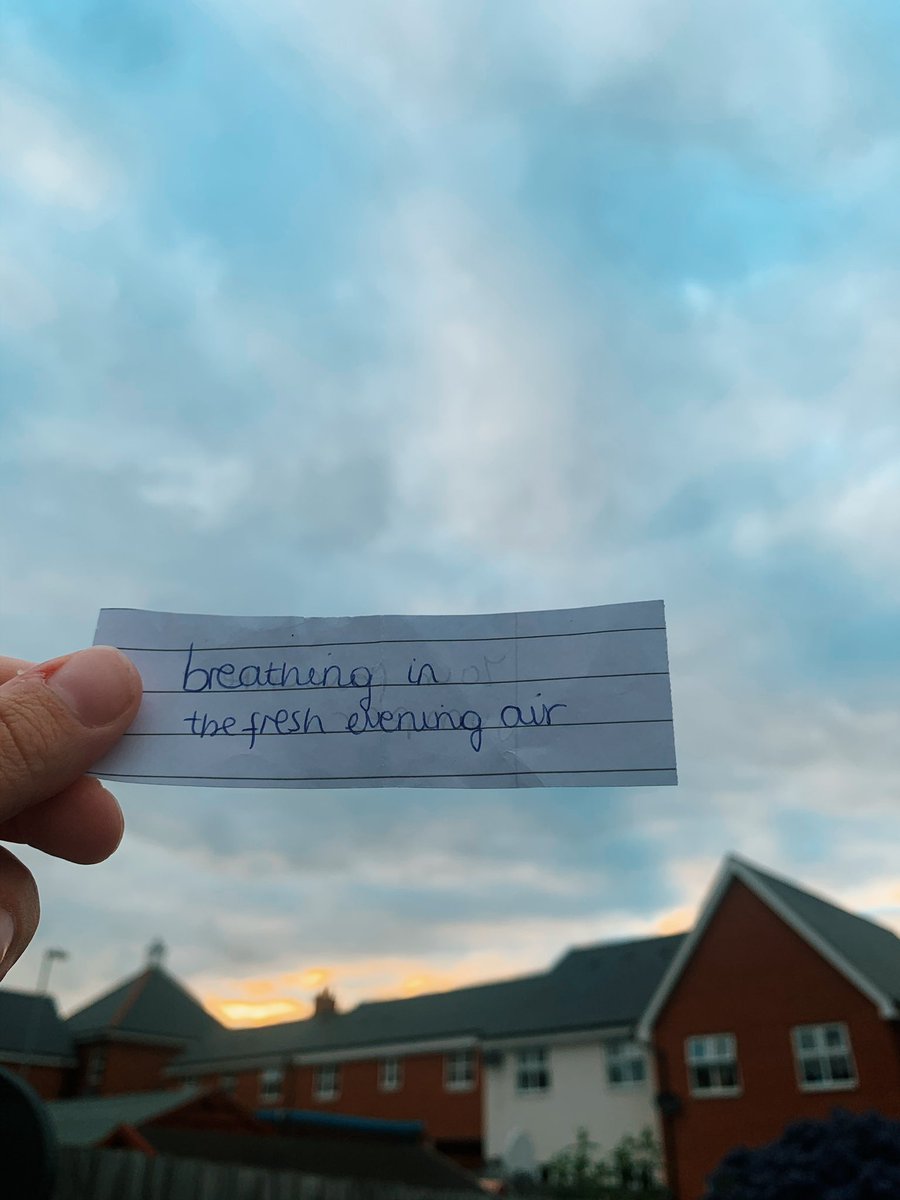 breathing in
the fresh evening air